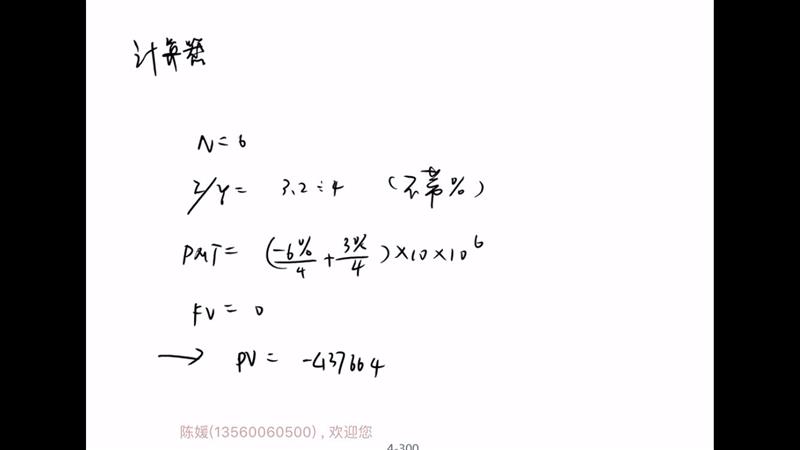 计算器
N = 6
I/Y = 3.2 ÷ 4 (不带%)
PMT = (-6%/4 + 3%/4) × 10 × 10^6
FV = 0
→ PV = -437664
陈媛(13560060500) , 欢迎您
4-300